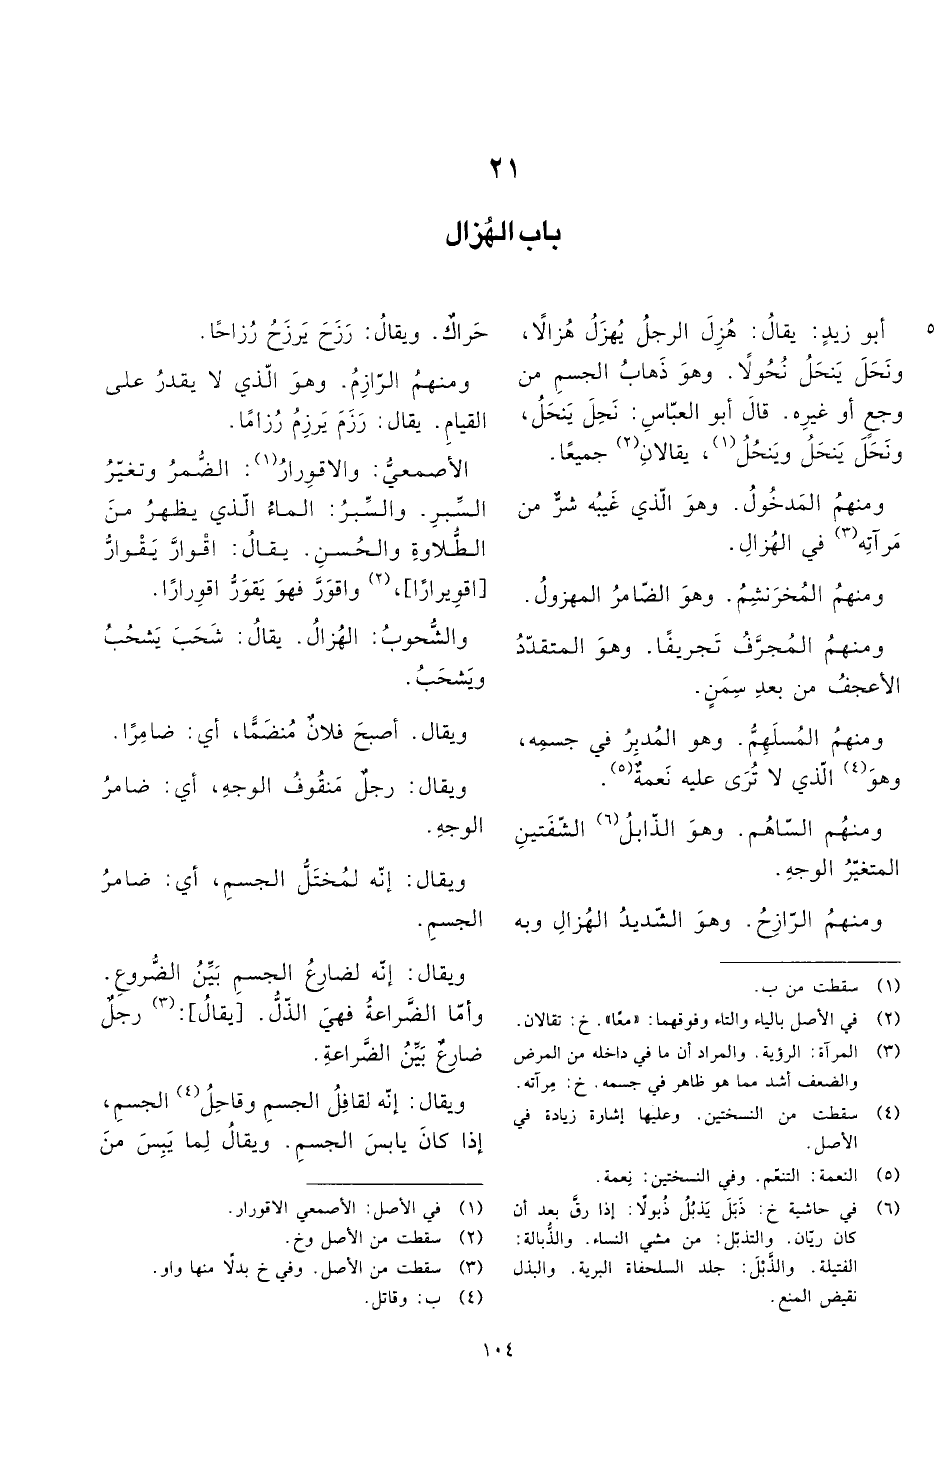 ٢١
باب الهُزال
٥
أبو زيدٍ: يقالُ: هُزِلَ الرجلُ يُهزَلُ هُزالًا،
ونَحَلَ يَنحَلُ نُحُولًا. وهوَ ذَهابُ الجسمِ من
وجعٍ أو غيرِه. قالَ أبو العبّاسِ: نَحِلَ يَنحَلُ،
ونَحَلَ يَنحَلُ ويَنحُلُ(١)، يقالانِ(٢) جميعًا.
ومنهمُ المَدخُولُ. وهوَ الّذي غَيبُه شرٌّ من
مَرآتِه(٣) في الهُزالِ.
ومنهمُ المُخرَنشِمُ. وهوَ الضّامرُ المهزولُ.
ومنهمُ المُجرَّفُ تَجريفًا. وهوَ المتقدّدُ
الأعجفُ من بعدِ سِمَنٍ.
ومنهمُ المُسلَهِمُّ. وهو المُدبِرُ في جسمِه،
وهوَ(٤) الّذي لا تُرَى عليه نَعمةٌ(٥).
ومنهُم السّاهُم. وهوَ الذّابلُ(٦) الشّفَتينِ
المتغيّرُ الوجهِ.
ومنهمُ الرّازحُ. وهوَ الشّديدُ الهُزالِ وبه
(١) سقطت من ب.
(٢) في الأصل بالياء والتاء وفوقهما: «معًا». خ: تقالان.
(٣) المرآة: الرؤية. والمراد أن ما في داخله من المرض
والضعف أشد مما هو ظاهر في جسمه. خ: مِرآته.
(٤) سقطت من النسختين. وعليها إشارة زيادة في
الأصل.
(٥) النعمة: التنعّم. وفي النسختين: نِعمة.
(٦) في حاشية خ: ذَبَلَ يَذبُلُ ذُبولًا: إذا رقَّ بعد أن
كان ريّان. والتذبّل: من مشي النساء. والذُّبالة:
الفتيلة. والذَّبْلَ: جلد السلحفاة البرية. والبذل
نقيض المنع.
حَراكٌ. ويقالُ: رَزَحَ يَرزَحُ رُزاحًا.
ومنهمُ الرّازِمُ. وهوَ الّذي لا يقدرُ على
القيامِ. يقال: رَزَمَ يَرزِمُ رُزامًا.
الأصمعيُّ: والاقورارُ(١): الضُّمرُ وتغيّرُ
السِّبرِ. والسِّبرُ: الماءُ الّذي يظهرُ منَ
الطُّلاوةِ والحُسنِ. يقالُ: اقْوارَّ يَقْوارُّ
[اقوِيرارًا]،(٢) واقوَرَّ فهوَ يَقوَرُّ اقورارًا.
والشُّحوبُ: الهُزالُ. يقالُ: شَحَبَ يَشحُبُ
ويَشحَبُ.
ويقال. أصبحَ فلانٌ مُنضَمًّا، أي: ضامِرًا.
ويقال: رجلٌ مَنقُوف الوجهِ، أي: ضامرُ
الوجهِ.
ويقال: إنّه لمُختَلُّ الجسمِ، أي: ضامرُ
الجسمِ.
ويقال: إنّه لضارِعُ الجسمِ بَيِّنُ الضُّروعِ.
وأمّا الضَّراعةُ فهيَ الذّلُّ. [يقالُ]:(٣) رجلٌ
ضارعٌ بَيِّنُ الضَّراعةِ.
ويقال: إنّه لقافِلُ الجسمِ وقاحِلُ(٤) الجسمِ،
إذا كانَ يابسَ الجسمِ. ويقالُ لِما يَبِسَ منَ
(١) في الأصل: الأصمعي الاقورار.
(٢) سقطت من الأصل وخ.
(٣) سقطت من الأصل. وفي خ بدلًا منها واو.
(٤) ب: وقاتل.
١٠٤